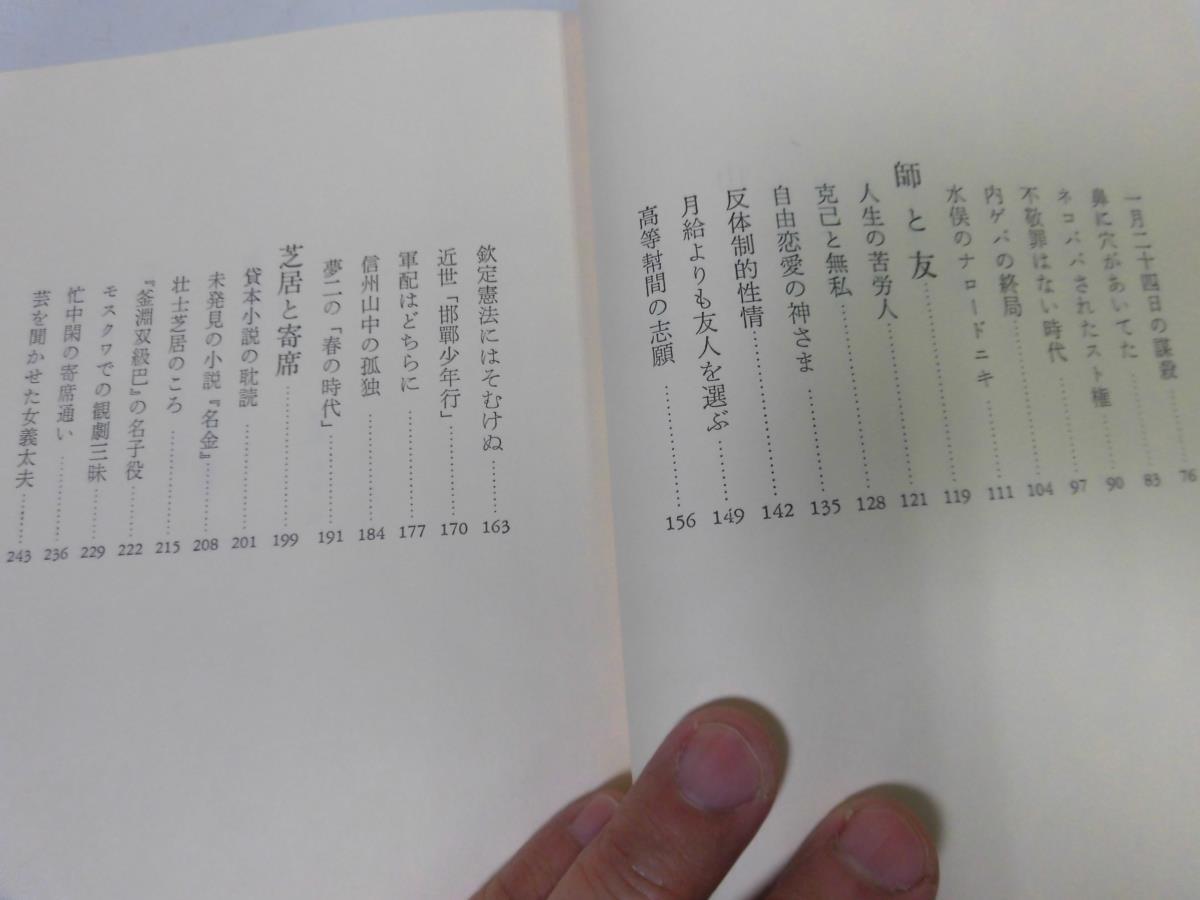 一月二十四日の謀殺……76
鼻に穴があいてた……83
ネコババされたスト権……90
不敬罪はない時代……97
内ゲバの終局……104
水俣のナロードニキ……111
師と友……119
人生の苦労人……121
克己と無私……128
自由恋愛の神さま……135
反体制的性情……142
月給よりも友人を選ぶ……149
高等幇間の志願……156
欽定憲法にはそむけぬ……163
近世「邯鄲少年行」……170
軍配はどちらに……177
信州山中の孤独……184
夢二の「春の時代」……191
芝居と寄席……199
貸本小説の耽読……201
未発見の小説『名金』……208
壮士芝居のころ……215
『釜淵双級巴』の名子役……222
モスクワでの観劇三昧……229
忙中閑の寄席通い……236
芸を聞かせた女義太夫……243